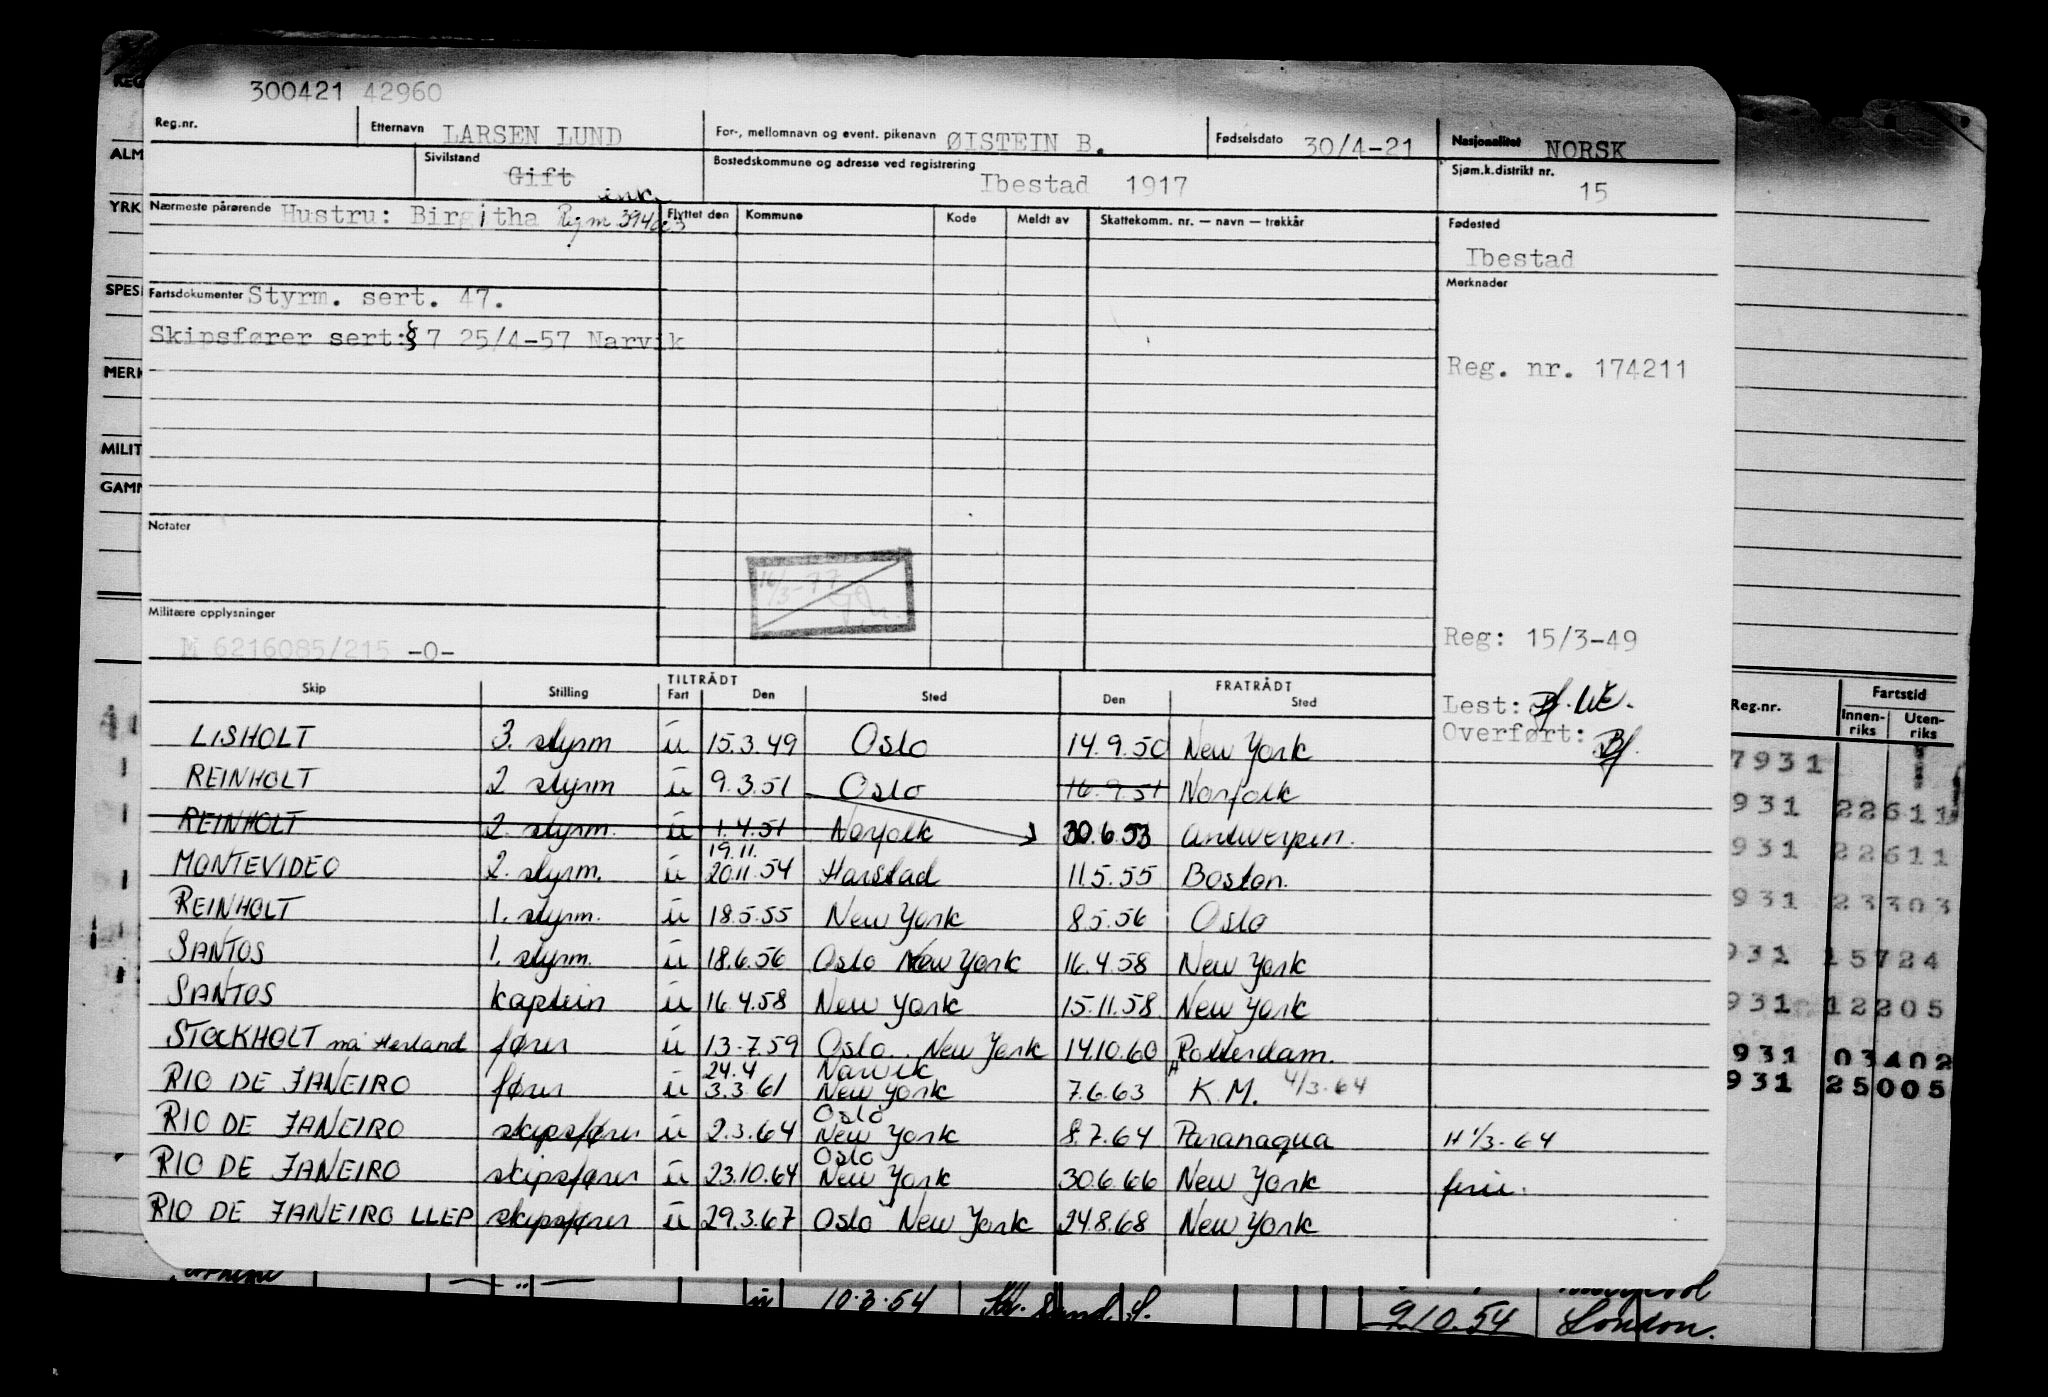 300421 42960
Reg.nr. Etternavn LARSEN LUND For-, mellomnavn og event. pikenavn ØISTEIN B. Fødselsdato 30/4-21 Nasjonalitet NORSK
Sivilstand Gift enk. Bostedskommune og adresse ved registrering Ibestad 1917 Sjøm.k.distrikt nr. 15
Nærmeste pårørende Hustru: Birgitha Flyttet den Kommune Kode Meldt av Skattekomm. nr. — navn — trekkår Fødested
Ibestad
Merknader
Fartsdokumenter Styrm. sert. 47.
Skipsfører sert:§ 7 25/4-57 Narvik
Reg. nr. 174211
Notater
16/3-77
Militære opplysninger
M 6216085/215 -0-
Reg: 15/3-49
Lest:
Overført:
TILTRÅDT FRATRÅDT
Skip Stilling Fart Den Sted Den Sted
LISHOLT 3. styrm u 15.3.49 Oslo 14.9.50 New York
REINHOLT 2 styrm u 9.3.51 Oslo 16.9.51 Norfolk
REINHOLT 2. styrm. u 1.4.51 Norfolk 30.6.53 Antwerpen.
19.11.
MONTEVIDEO 2. styrm. u 20.11.54 Harstad 11.5.55 Boston.
REINHOLT 1. styrm. u 18.5.55 New York 8.5.56 Oslo
SANTOS 1. styrm. u 18.6.56 Oslo New York 16.4.58 New York
SANTOS kaptein u 16.4.58 New York 15.11.58 New York
STOCKHOLT nå Herland fører u 13.7.59 Oslo. New York 14.10.60 Rotterdam.
24.4 Narvik
RIO DE JANEIRO fører u 3.3.61 New York 7.6.63 K.M. 4/3-64
Oslo
RIO DE JANEIRO skipsfører u 2.3.64 New York 8.7.64 Paranaqua H 1/3-64
Oslo
RIO DE JANEIRO skipsfører u 23.10.64 New York 30.6.66 New York ferie.
RIO DE JANEIRO LLEP skipsfører u 29.3.67 Oslo New York 24.8.68 New York
REG
ALM
YRK
SPESI
MERK
MILIT
GAMM
Reg.nr. Fartstid
Innen-riks Uten-riks
7931
931 22611
931 22611
931 23303
931 15724
931 12205
931 03402
931 25005
10.3.54 9.10.54 London.